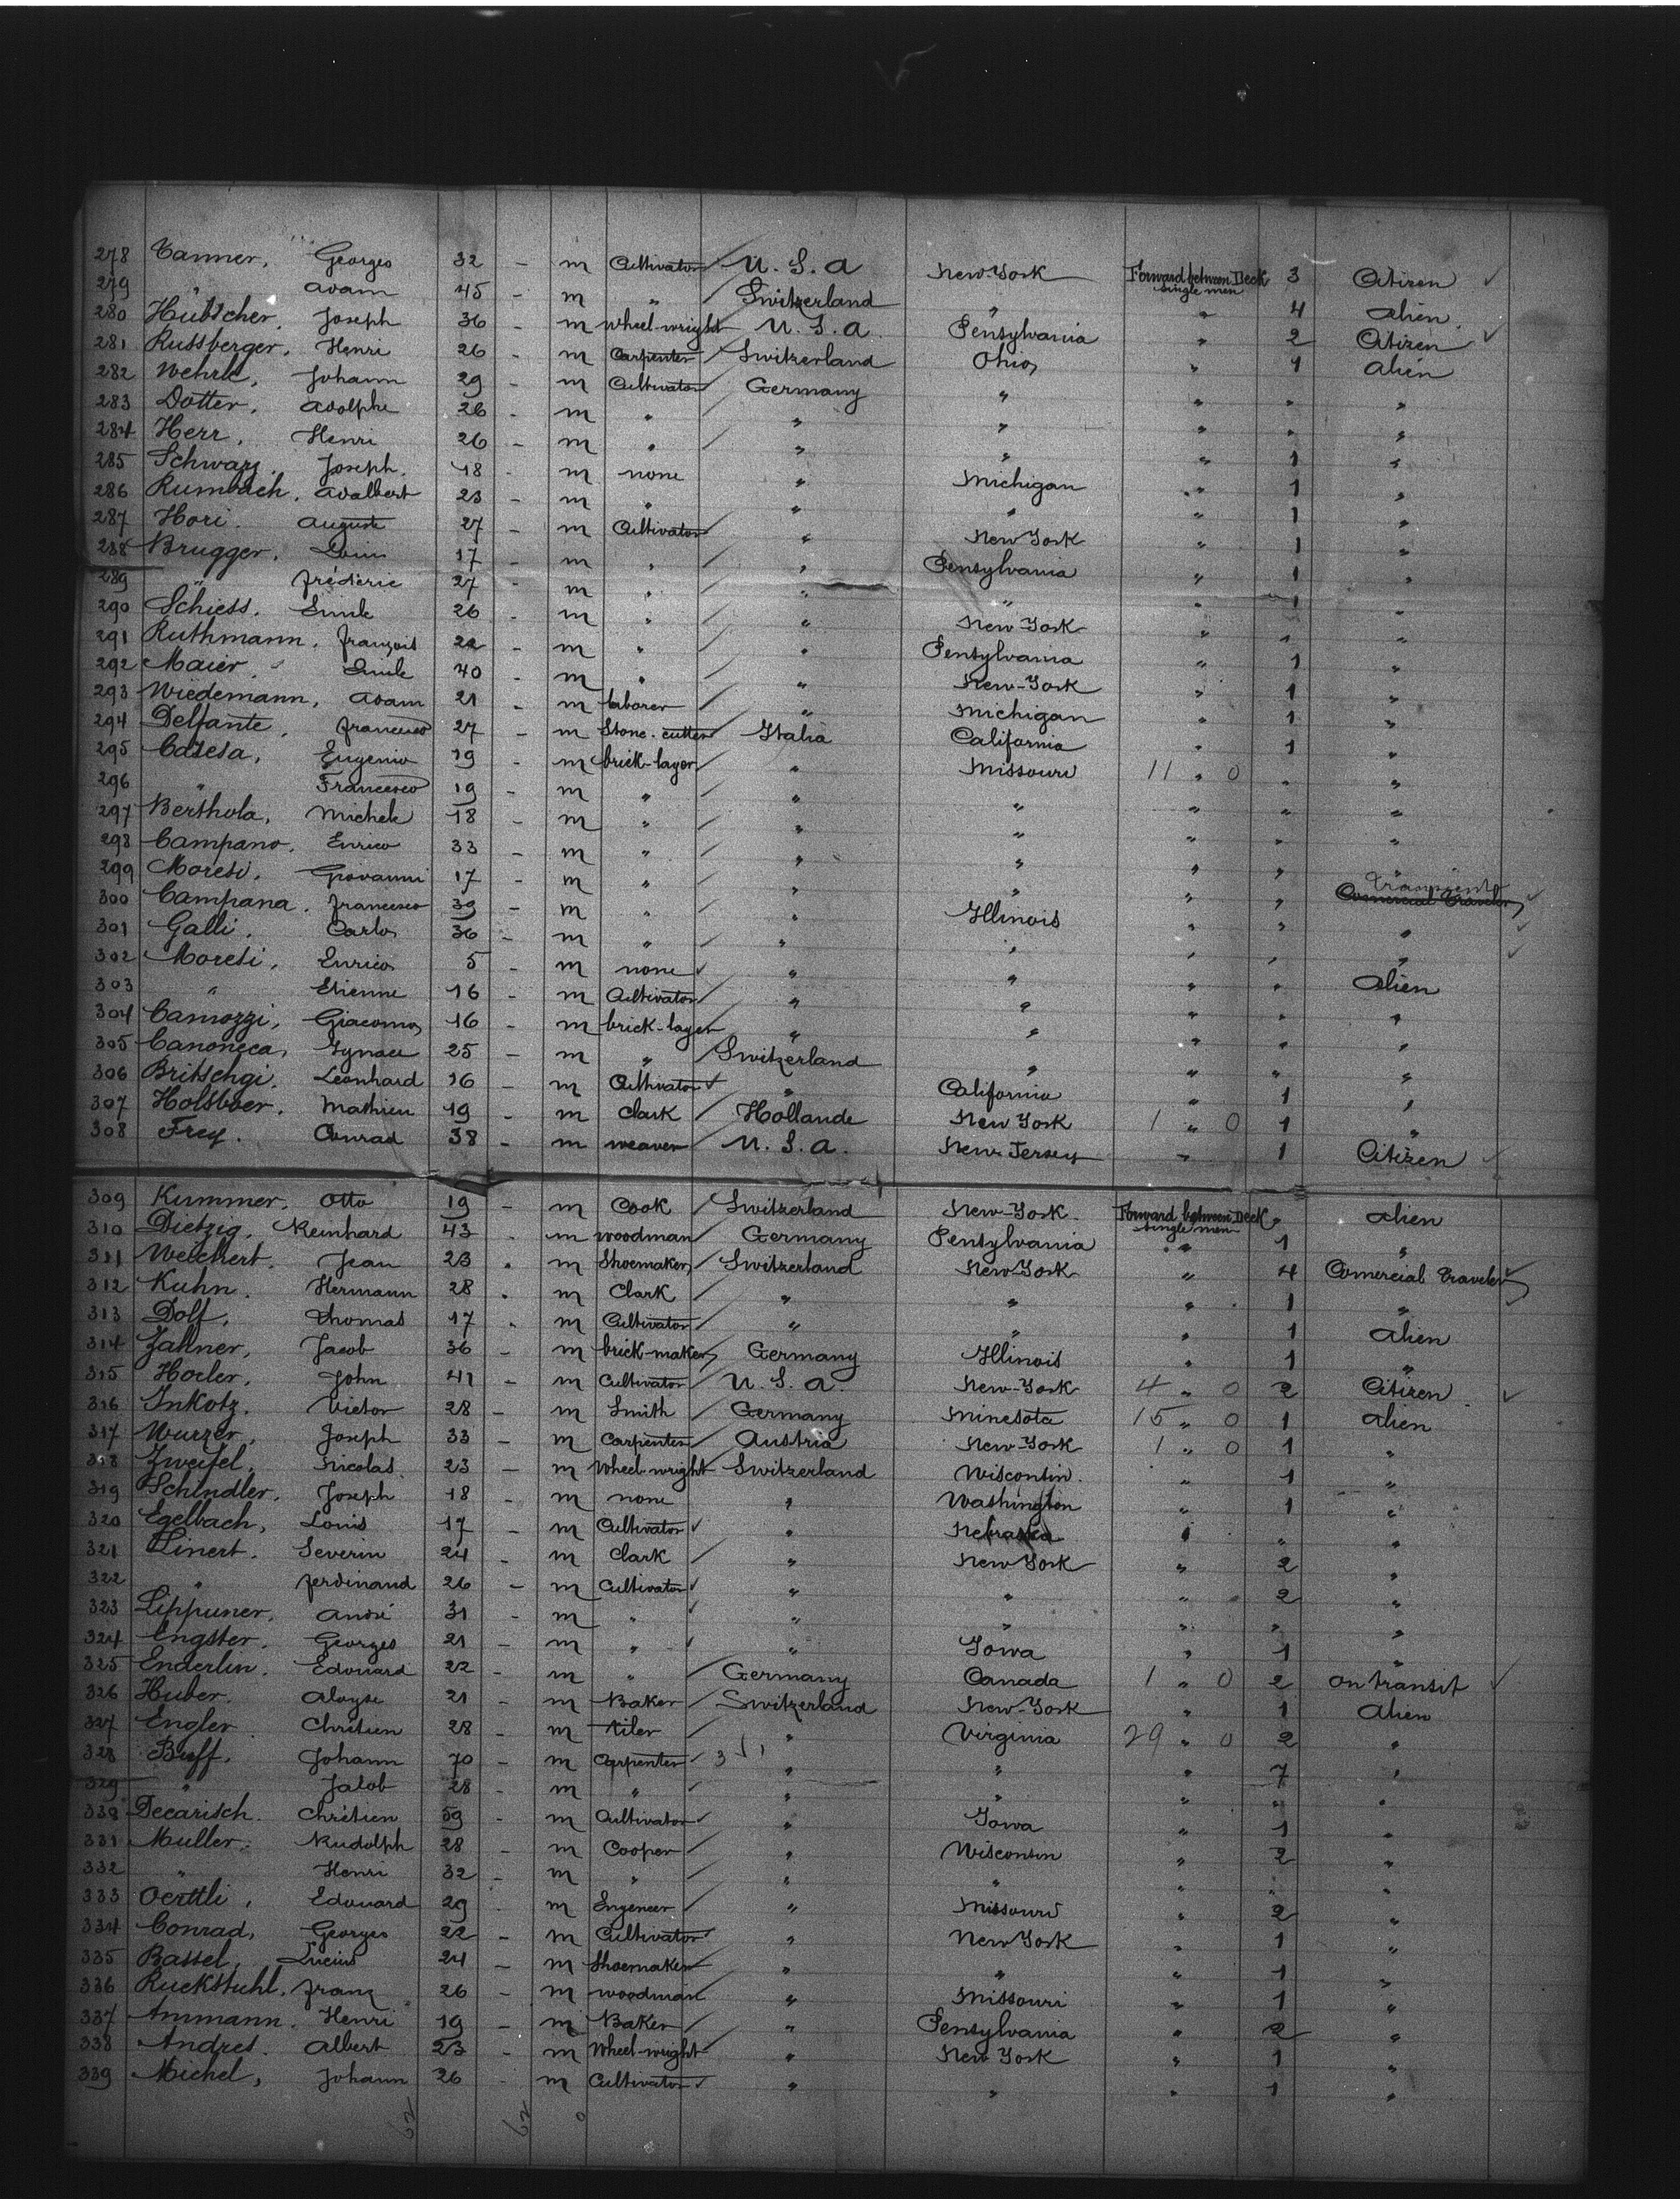 278 Tanner, Georges 32 - m Cultivator U. S. A New York Forward between Deck single men 3 Citizen
279 " Adam 45 - m " Switzerland " " 4 Alien
280 Hübscher, Joseph 36 - m Wheel-wright U. S. A Pensylvania " 2 Citizen
281 Russberger, Henri 26 - m Carpenter Switzerland Ohio " 1 Alien
282 Wehrle, Johann 29 - m Cultivator Germany " " " "
283 Dotter, Adolphe 26 - m " " " " " "
284 Herr, Henri 26 - m " " " " 1 "
285 Schwarz, Joseph 18 - m none " Michigan " 1 "
286 Rumbach, Adalbert 23 - m " " " " 1 "
287 Hori, Auguste 27 - m Cultivator " New York " 1 "
288 Brugger, Louis 17 - m " " Pensylvania " 1 "
289 " Fréderic 27 - m " " " " 1 "
290 Schiess, Emile 26 - m " " New York " " "
291 Ruthmann, François 22 - m " " Pensylvania " 1 "
292 Maier, Emile 40 - m " " New-York " 1 "
293 Wiedemann, Adam 21 - m laborer " Michigan " 1 "
294 Delfante, Francesco 27 - m Stone-cutter Italia California " 1 "
295 Casesa, Eugenio 19 - m brick-layer " Missouri 11 " 0 " "
296 " Francesco 19 - m " " " " " "
297 Berthola, Michele 18 - m " " " " " "
298 Campano, Enrico 33 - m " " " " " "
299 Moresi, Giovanni 17 - m " " " " " Transient Comercial Traveler
300 Campana, Francesco 39 - m " " Illinois " " "
301 Galli, Carlo 36 - m " " " " " "
302 Moresi, Enrico 5 - m none " " " " Alien
303 " Etienne 16 - m Cultivator " " " " "
304 Camozzi, Giacomo 16 - m brick-layer " " " " "
305 Canoneca, Ignace 25 - m " Switzerland " " " "
306 Britschgi, Leonhard 16 - m Cultivator " California " 1 "
307 Holsboer, Mathieu 19 - m Clark Hollande New York 1 " 0 1 "
308 Frey, Conrad 38 - m weaver U. S. A. New Jersey " 1 Citizen
309 Kummer, Otto 19 - m Cook Switzerland New-York Forward between Deck single men " Alien
310 Dietzig, Reinhard 43 - m woodman Germany Pensylvania " 1 "
311 Weichert, Jean 23 - m Shoemaker Switzerland New York " 4 Comercial Traveler
312 Kuhn, Hermann 28 - m Clark " " " 1 "
313 Dolf, Thomas 17 - m Cultivator " " " 1 Alien
314 Zahner, Jacob 36 - m brick-maker Germany Illinois " 1 "
315 Hoeler, John 41 - m Cultivator U. S. A. New-York 4 " 0 2 Citizen
316 Inkotz, Victor 28 - m Smith Germany Minesota 15 " 0 1 Alien
317 Wurzer, Joseph 33 - m Carpenter Austria New-York 1 " 0 1 "
318 Zweifel, Nicolas 23 - m Wheel-wright Switzerland Wisconsin " 1 "
319 Schindler, Joseph 18 - m none " Washington " 1 "
320 Egelbach, Louis 17 - m Cultivator " Nebraska " " "
321 Linert, Severin 24 - m Clark " New York " 2 "
322 " Ferdinand 26 - m Cultivator " " " 2 "
323 Lippuner, André 31 - m " " " " " "
324 Engster, Georges 21 - m " " Iowa " 1 "
325 Enderlin, Edouard 22 - m " Germany Canada 1 " 0 2 on transit
326 Huber, Aloyse 21 - m Baker Switzerland New-York " 1 Alien
327 Engler, Chrétien 28 - m tiler " Virginia 29 " 0 2 "
328 Buff, Johann 70 - m Carpenter " " " 7 "
329 " Jakob 28 - m " " " " " "
330 Decarisch, Chrétien 59 - m Cultivator " Iowa " 1 "
331 Muller, Rudolph 28 - m Cooper " Wisconsin " 2 "
332 " Henri 32 - m " " " " " "
333 Oerttli, Edouard 29 m Engeneer " Missouri " 2 "
334 Conrad, Georges 22 - m Cultivator " New York " 1 "
335 Bassel, Lucius 24 - m Shoemaker " " " 1 "
336 Ruckstuhl, Franz 26 - m woodman " Missouri " 1 "
337 Ammann, Henri 19 - m Baker " Pensylvania " 2 "
338 Andres, Albert 23 - m Wheel-wright " New York " 1 "
339 Michel, Johann 26 - m Cultivator " " " 1 "
62 62 0